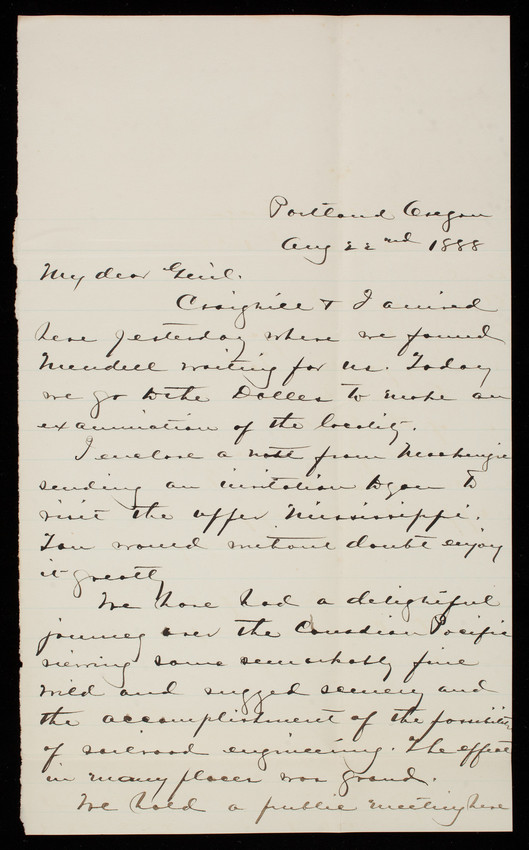 Portland Oregon
Aug 22nd 1888
My dear Genl.
Craighill & I arrived
here yesterday where we found
Mendell waiting for us. Today
we go to the Dalles to make an
examination of the locality.
I enclose a note from Mackenzie
sending an invitation to you to
visit the upper Mississippi.
You would without doubt enjoy
it greatly
We have had a delightful
journey over the Canadian Pacific
viewing some remarkably fine
wild and rugged scenery and
the accomplishment of the
of railroad engineering. The effect
in many places was grand.
We hold a public meeting here